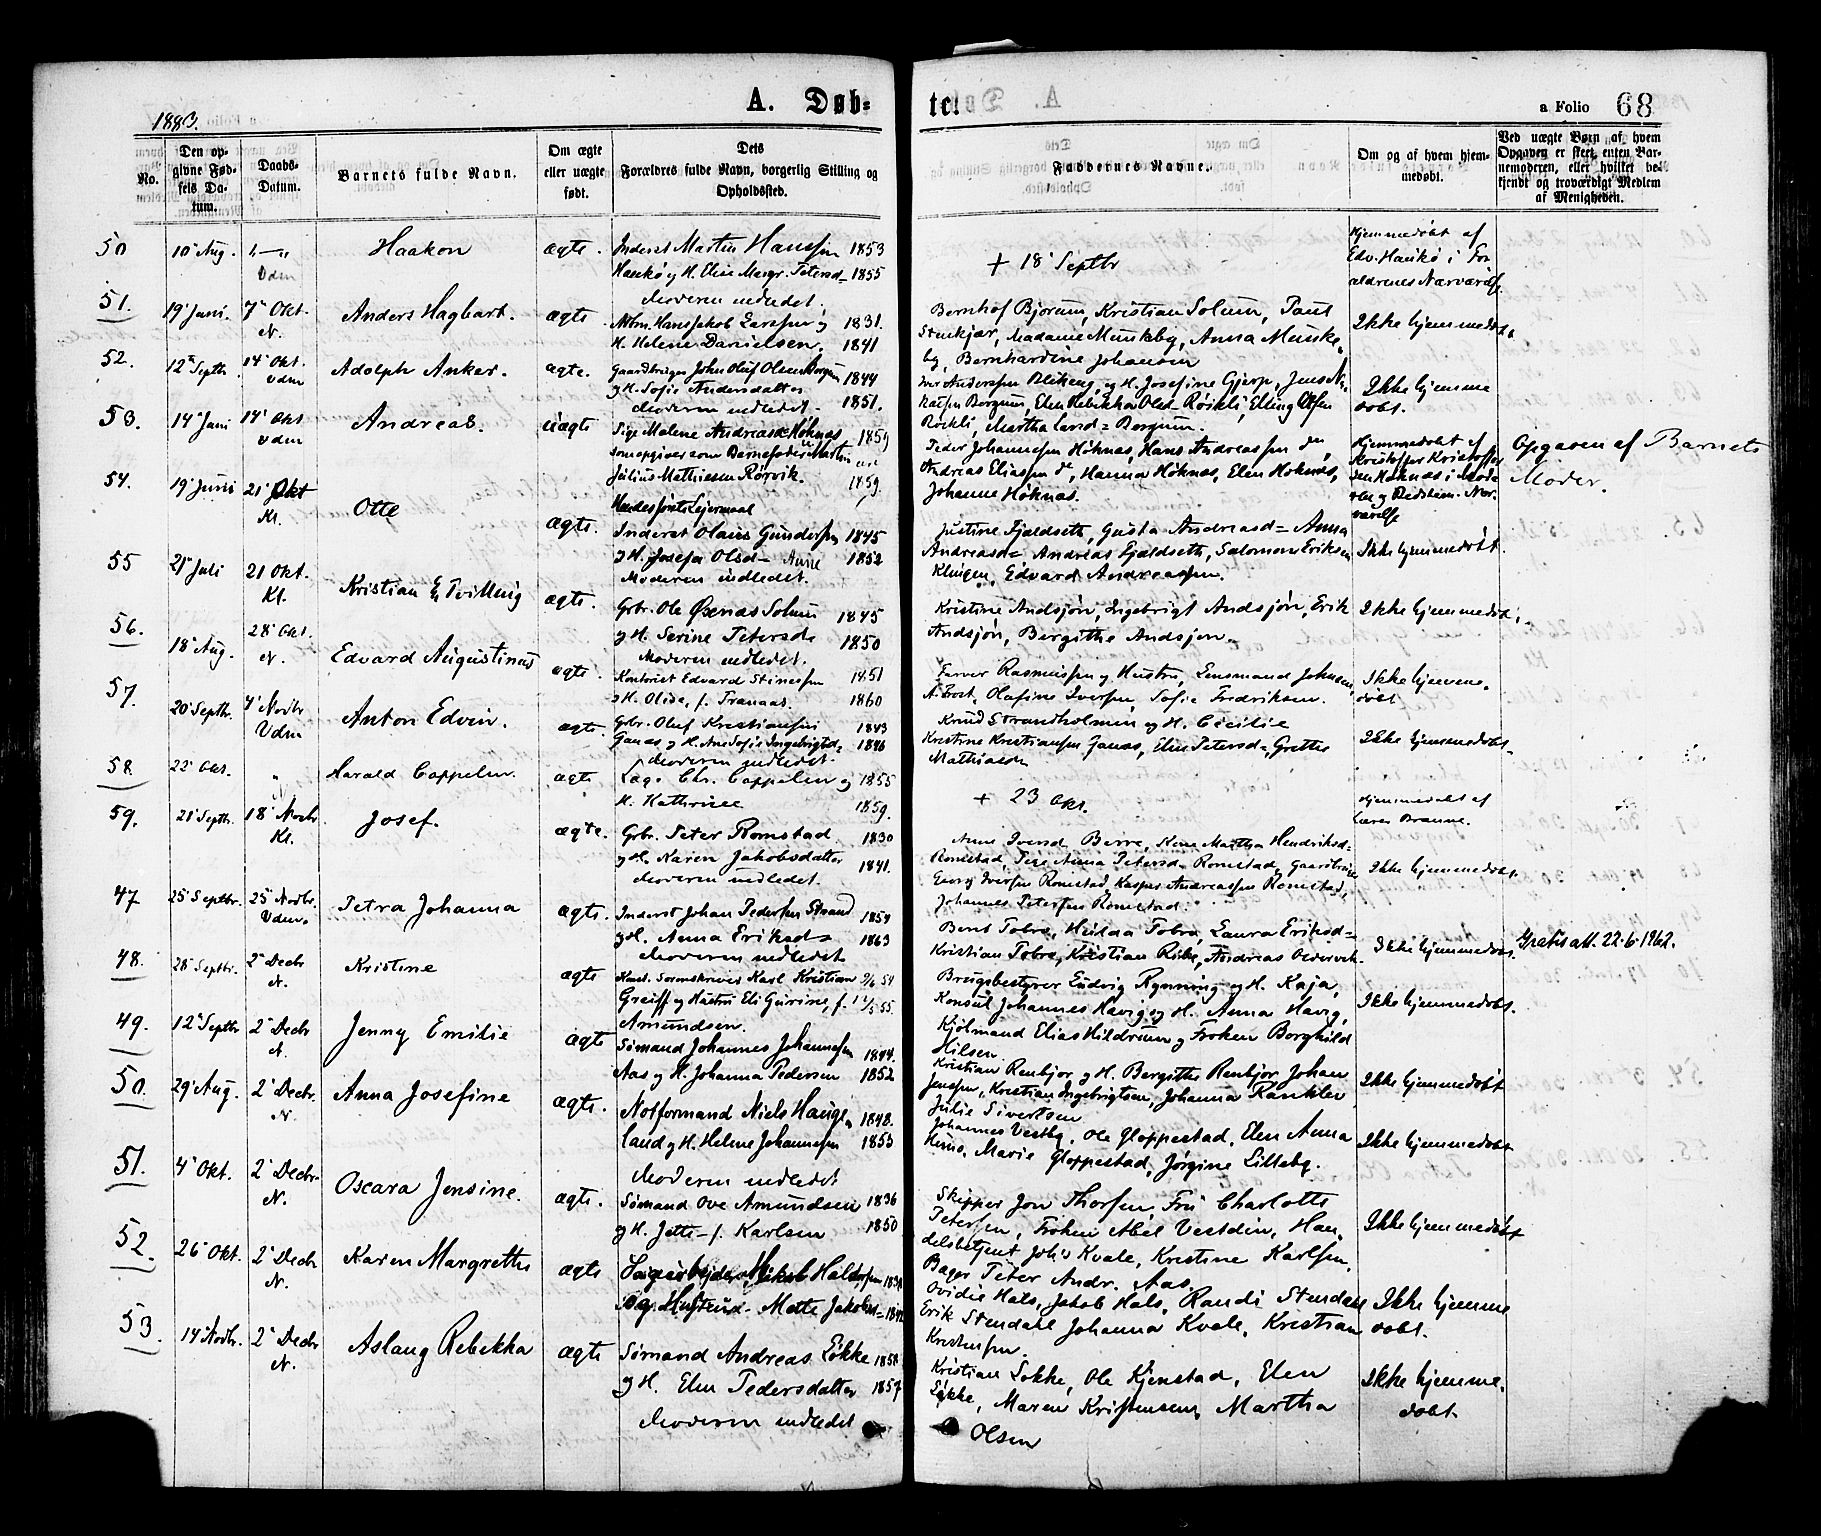 1883.
A. Døb-
tel
a Folio 68
No.
Den op-
givne Fød-
sels Da-
tum.
Daabs-
Datum.
Barnets fulde Navn.
Om ægte
eller uægte
født.
Dets
Forældres fulde Navn, borgerlig Stilling og
Opholdssted.
Faddernes Navne.
Om og af hvem hjem-
medøbt.
Ved uægte Børn af hvem
Opgaven er skeet, enten Bar-
nemoderen, eller hvilket be-
kjendt og troværdigt Medlem
af Menigheden.
50
10' Aug.
Vdm
Haakon
ægte.
Inderst Martin Hanssen 1853
Haukø og H. Elen Margr. Petersd= 1855
Moderen indledet.
+ 18' Septbr
Hjemmedøbt af
Edv. Haukø i For
ældrenes Nærværelse
51.
19' Juni.
7' Okt.
N.
Anders Hagbart.
ægte.
Hans Jakob Larssen og 1831.
H. Helene Danielsen. 1841
Bernhof Bjørum, Kristian Solum, Paul
Stenkjær, Madame Munkeby, Anna Munke-
by, Bernhardine Johansen
Ikke hjemmedøbt.
52.
12' Septbr.
14' Okt.
Vdm
Adolph Anker.
ægte.
Gaardbruger John Oluf Olsen Borgum 1844
og H. Sofie Andersdatter 1851.
Moderen indledet.
Anderssen Blikeng, og H. Josefine Gjerp, Jens
Borgum, Elen Rebekka Olsd= Røikli, Elling Olsen
Røikli, Martha Borgum.
Ikke hjemme
døbt.
53.
14' Juni
14' Okt
Vdm
Andreas.
uægte
Pige Malene Andreasd= Høknes 1859
som opgiver som Barnefader Martin
Julius Mathiesen Rørvik. 1859.
Hendes første Leiermaal
Peder Johannessen Høknes, Hans Andreassen
Andreas Eliassen, Hanna Høknes, Elen Høknes,
Johanne Høknes.
Hjemmedøbt af
Kristoffer Kristoffer
sen Høknes i Mode
ren og Bedstem. Nær
værelse
Opgaven af Barnets
Moder.
54.
19' Juni
21' Okt
Kl.
Otte
ægte.
Inderst Olaus Gundersen 1845
og H. Josefa Olsd= 1852
Moderen indledet.
Justine Fjeldseth, Gusta Andreasd= Anna
Andreasd= Andreas Fjeldseth, Salomon Eriksen
Klingen, Edvard Andreassen.
Ikke hjemmedøbt.
55
21' Juli
21 Okt.
Kl.
Kristian En Tvilling
ægte.
Grbr. Ole Øxenes Solum 1845
og H. Serine Petersd= 1850
Moderen indledet.
Kristine Andsjøn, Ingebrigt Andsjøn, Erik
Andsjøn, Bergithe Andsjøn.
Ikke hjemmedøbt.
56.
18' Aug.
28' Okt.
N.
Edvard Augustinus
ægte.
Kontorist Edvard Stinessen 1851
og H. Olise, f. Tranaas. 1860
Farver Rasmussen og Hustru, Lensmand Johnsen,
A. Frost, Olafine Iversen, Sofie Fredriksen.
Ikke hjemme-
døbt
57.
20' Septbr.
4' Novbr
Vdm
Anton Edvin.
ægte.
Grbr. Oluf Kristiansen 1843
Ganes, og H. Ane Sofie Ingebrigtsd= 1846
Moderen indledet.
Knud Strandholmen og H. Cecilie
Kristine Kristiansen Ganes, Elen Petersd=, Grethe
Mathiasen
Ikke hjemmedøbt.
58
22' Okt.
"
Harald Cappelen.
ægte
Læge Chr. Cappelen og 1855
H. Kathrine 1859.
+ 23 Okt.
Hjemmedøbt af
Lærer Braune.
59.
21' Septbr.
18' Novbr.
Kl.
Josef.
ægte.
Grbr. Peter Romstad 1830
og H. Karen Jakobsdatter 1841.
Moderen indledet.
Anne Iversd Berre, Kone Martha Hendriksd=
Romstad, Pige Anna Petersd= Romstad, Gaardbruger
Georg Iversen Romstad, Kasper Andreassen Romstad,
Johannes Petersen Romstad.
Ikke hjemmedøbt.
47
25' Septbr.
25' Novbr.
Vdm.
Petra Johanna
ægte.
Inderst Johan Pedersen Strand 1854
og H. Anna Eriksd= 1863
Moderen indledet
Bernt Tobre, Hulda Tobre, Laura Eriksd=
Kristian Tobre, Kristian Ribe, Andreas
Ikke hjemmedøbt.
Gratis att. 22-6-1962.
48.
28' Septbr.
2' Decbr
N.
Kristine
ægte
Karl Kristian
Greiff og Hustru Eli Gurine, f.
Amundsen.
Brugsbestyrer Ludvig Rynning og H. Kaja,
Konsul Johannes Havig og H. Anna Havig,
Kjølmand Elias Hildrum og Frøken Borghild
Nilsen.
Ikke hjemmedøbt.
49.
12' Septbr
2' Decbr
N.
Jenny Emilie
ægte
Sømand Johannes Johannesen 1844.
Aas og H. Johanna Pedersen 1852
Kristian Renbjør og H. Bergitte Renbjør Johan
Jenssen, Kristian Ingebrigtsen, Johanna Ranklev
Julie Sivertsen
Ikke hjemmedøbt
50.
29' Aug.
2' Decbr.
N.
Anna Josefine
ægte.
Notformand Niels Hauge- 1848.
land og H. Helene Johannesen 1853
Moderen indledet
Johannes Vestby, Ole Gloppestad, Elen Anna
Hems, Marie Gloppestad, Jørgine Lilleby.
Ikke hjemmedøbt
51.
4' Okt.
2' Decbr.
N.
Oscara Jensine.
ægte.
Sømand Ove Amundsen 1836
og H. Jette f. Karlsen 1850
Skipper Jon Thorsen, Fru Charlotte
Petersen, Frøken Abel Vestdin, Han-
delsbetjent Johs Kvale, Kristine Karlsen,
Bager Peter Andr. Aas.
Ikke hjemmedøbt
52.
26' Okt.
2' Decbr
N.
Karen Margrethe
ægte
Sagarbeider Mikal Haldorsen
og Hustru Mette Jakobs=
Ovidie Hals, Jakob Hals, Randi Stendahl
Erik Stendahl Johanna Kvale, Kristian
Kristensen.
Ikke hjemme
døbt.
53.
14' Novbr.
2' Decbr
N.
Aslaug Rebekka
ægte
Sømand Andreas Løkke 1858
og H. Elen Pedersdatter 1857
Moderen indledet
Kristian Løkke, Ole Kjenstad, Elen
Løkke, Maren Kristensen, Martha
Olsen
Ikke hjemme-
døbt.